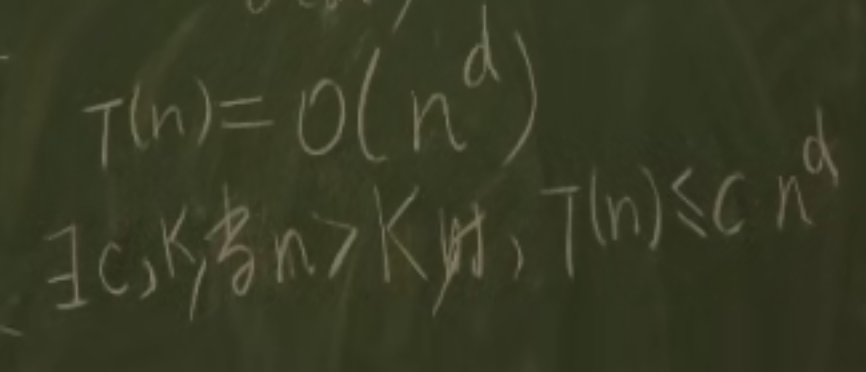 T(n)=O(n^d)
∃c,K,当n>K时,T(n)≤c n^d